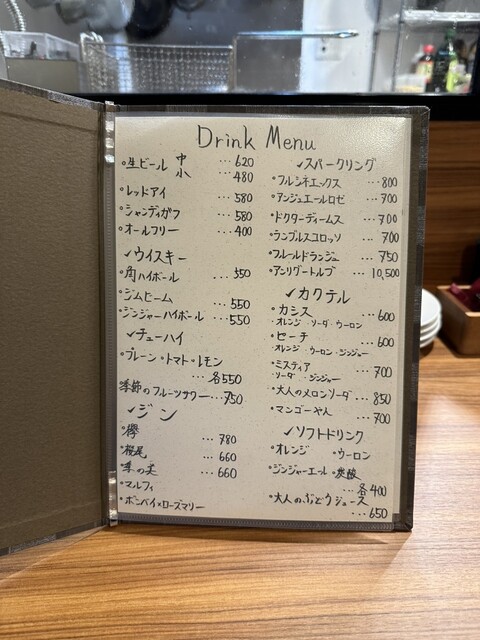 Drink Menu
・生ビール 中 …620
小 …480
・レッドアイ …580
・シャンディガフ …580
・オールフリー …400
✓ウイスキー
・角ハイボール …550
・ジムビーム …550
・ジンジャーハイボール …550
✓チューハイ
・プレーン・トマト・レモン
…各550
季節のフルーツサワー…750
✓ジン
・欅 …780
・桜尾 …660
・季の美 …660
・マルフィ
・ボンバイ×ローズマリー
✓スパークリング
・フルシネエックス …800
・アンジュエールロゼ …700
・ドクターディームス …700
・ランブルスコロッソ …700
・フルールドランジュ …750
・アンリグートルブ …10,500
✓カクテル
・カシス …600
・オレンジ・ソーダ・ウーロン
・ピーチ …600
・オレンジ・ウーロン・ジンジャー
・ミスティア …700
・ソーダ・ジンジャー
・大人のメロンソーダ …850
・マンゴーやん …700
✓ソフトドリンク
・オレンジ ・ウーロン
・ジンジャーエール・炭酸
…各400
・大人のぶどうジュース
…650